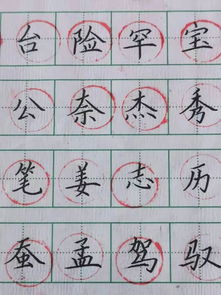 台险罕宝
公奈杰秀
笔姜志历
蚕孟驾驭